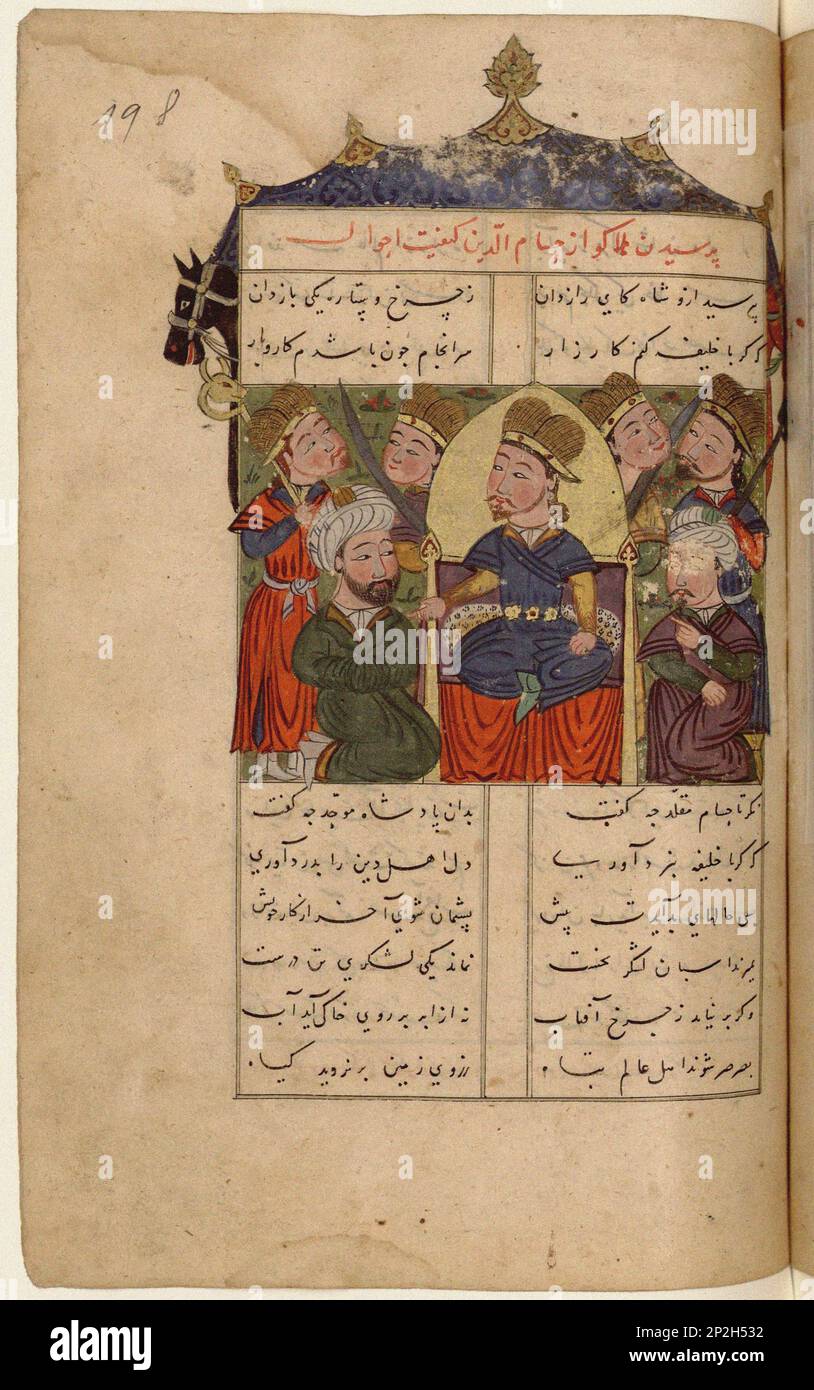 198
پرسیدن هلاکو از حسام الدین کیفیت احوال
بپرسید ازو شاه کای رازدان
ز چرخ و ستاره یکی بازدان
که گر با خلیفه کنم کارزار
سرانجام چون باشدم کاروبار
نگر تا حسام مقلد چه گفت
بدان پادشاه موحد چه گفت
که گر با خلیفه نبرد آوریا
دل اهل دین را بدرد آوری
پس حالهای بدآیدت پیش
پشیمان شوی آخر از کار خویش
بمیرند اسبان لشکر نخست
نماند یکی لشکری تن درست
وگر بر نیاید ز چرخ آفتاب
نه از ابر بر روی خاک آید آب
بصرصر شوند اهل عالم تباه
ز روی زمین بر نروید گیاه
a
alamy
Image ID: 2P2H532
www.alamy.com